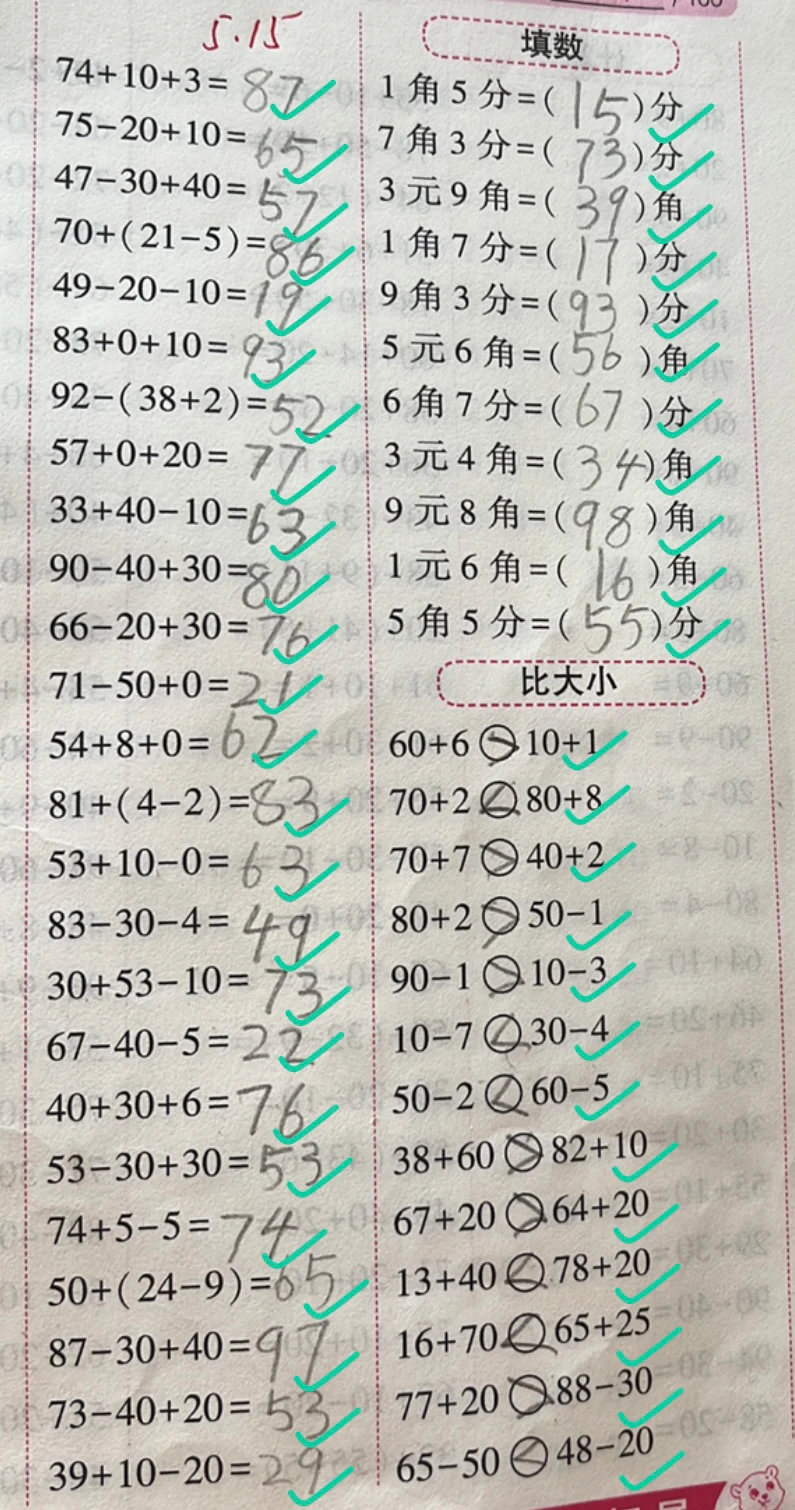 5.15
74+10+3=87
75-20+10=65
47-30+40=57
70+(21-5)=86
49-20-10=19
83+0+10=93
92-(38+2)=52
57+0+20=77
33+40-10=63
90-40+30=80
66-20+30=76
71-50+0=21
54+8+0=62
81+(4-2)=83
53+10-0=63
83-30-4=49
30+53-10=73
67-40-5=22
40+30+6=76
53-30+30=53
74+5-5=74
50+(24-9)=65
87-30+40=97
73-40+20=53
39+10-20=29
填数
1角5分=(15)分
7角3分=(73)分
3元9角=(39)角
1角7分=(17)分
9角3分=(93)分
5元6角=(56)角
6角7分=(67)分
3元4角=(34)角
9元8角=(98)角
1元6角=(16)角
5角5分=(55)分
比大小
60+6>10+1
70+2<80+8
70+7>40+2
80+2>50-1
90-1>10-3
10-7<30-4
50-2<60-5
38+60>82+10
67+20>64+20
13+40<78+20
16+70<65+25
77+20>88-30
65-50<48-20